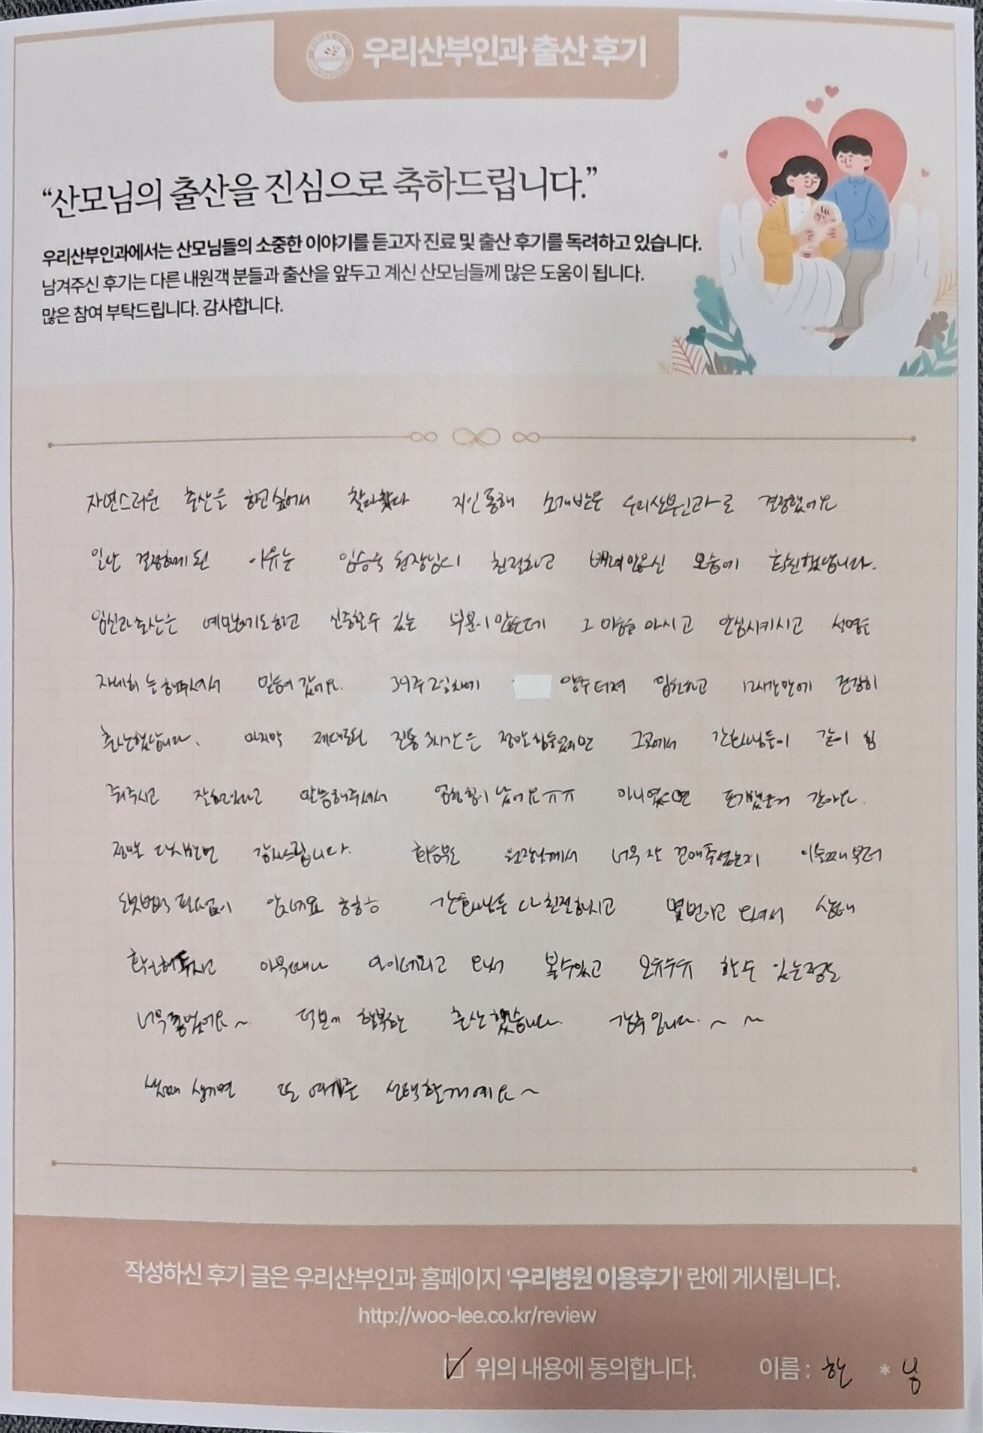 우리산부인과 출산 후기
“산모님의 출산을 진심으로 축하드립니다.”
우리산부인과에서는 산모님들의 소중한 이야기를 듣고자 진료 및 출산 후기를 독려하고 있습니다.
남겨주신 후기는 다른 내원객 분들과 출산을 앞두고 계신 산모님들께 많은 도움이 됩니다.
많은 참여 부탁드립니다. 감사합니다.
자연스러운 출산을 하고 싶어서 찾아봤다 지인 통해 소개받은 우리산부인과로 결정했어요
일단 결정하게 된 이유는 원장님이 친절하고 배려있으신 모습에 확신했답니다.
임신과 출산은 예민하기도하고 신중할수 있는 부분이 있는데 그 마음을 아시고 안심시키시고 설명을
자세히 해주셔서 믿음이 갔어요. 39주 2일차에 양수터져 입원하고 12시간만에 건강히
출산했답니다. 마지막 제대로된 진통 3시간은 정말 힘들었지만 그곳에서 간호사님들이 같이 힘
주시고 잘하고있다고 말씀해주셔서 엄청 힘이 났어요ㅠㅠ 아니었으면 포기했을거 같아요.
정말 다시한번 감사드립니다. 회음부도 원장님께서 너무 잘 꼬매주셨는지 이틀째부터
필요가 없네요 ㅎㅎㅎ 간호사님들 다 친절하시고 몇번이고 오셔서 상태
확인해주시고 아무때나 아이데리고 와서 볼수있고 모유수유 할 수 있는정도
너무 좋았어요~ 덕분에 행복한 출산했습니다. 강추입니다.~ ~
셋째 생기면 또 여기로 선택할거예요~
작성하신 후기 글은 우리산부인과 홈페이지 '우리병원 이용후기' 란에 게시됩니다.
http://woo-lee.co.kr/review
위의 내용에 동의합니다. 이름 : 한 * 님